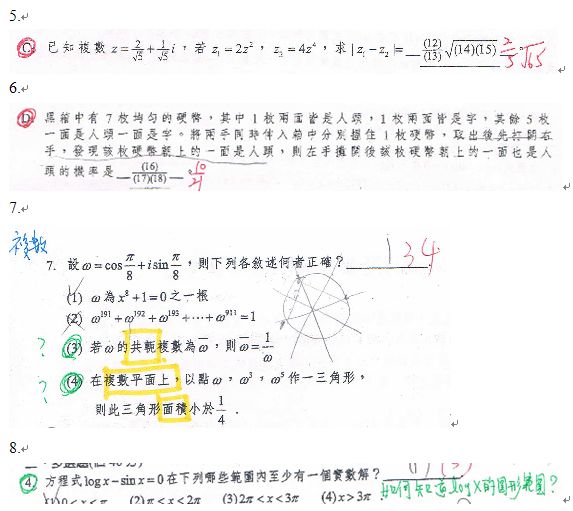 5.
C. 已知複數 z = 2/√5 + 1/√5 i，若 z₁ = 2z²，z₂ = 4z⁴，求 |z₁ − z₂| = (12)/(13) √(14)(15) 2/5 √65
6.
D. 黑箱中有 7 枚均勻的硬幣，其中 1 枚兩面皆是人頭，1 枚兩面皆是字，其餘 5 枚
一面是人頭一面是字。將兩手同時伸入箱中分別握住 1 枚硬幣，取出後先打開右
手，發現該枚硬幣朝上的一面是人頭，則左手攤開後該枚硬幣朝上的一面也是人
頭的機率是 (16)/(17)(18) 。 10/21
7.
複數
7. 設 ω = cos π/8 + i sin π/8，則下列各敘述何者正確？ 1 3 4
(1) ω 為 x⁸ + 1 = 0 之一根
(2) ω¹⁹¹ + ω¹⁹² + ω¹⁹³ + ⋯ + ω⁹¹¹ = 1
? (3) 若 ω 的共軛複數為 ω̅，則 ω̅ = 1/ω
? (4) 在複數平面上，以點 ω，ω³，ω⁵ 作一三角形，
則此三角形面積小於 1/4．
8.
4. 方程式 log x − sin x = 0 在下列哪些範圍內至少有一個實數解？ 如何知道 log X 的圖形範圍？
(1) 0 < x < π (2) π < x < 2π (3) 2π < x < 3π (4) x > 3π